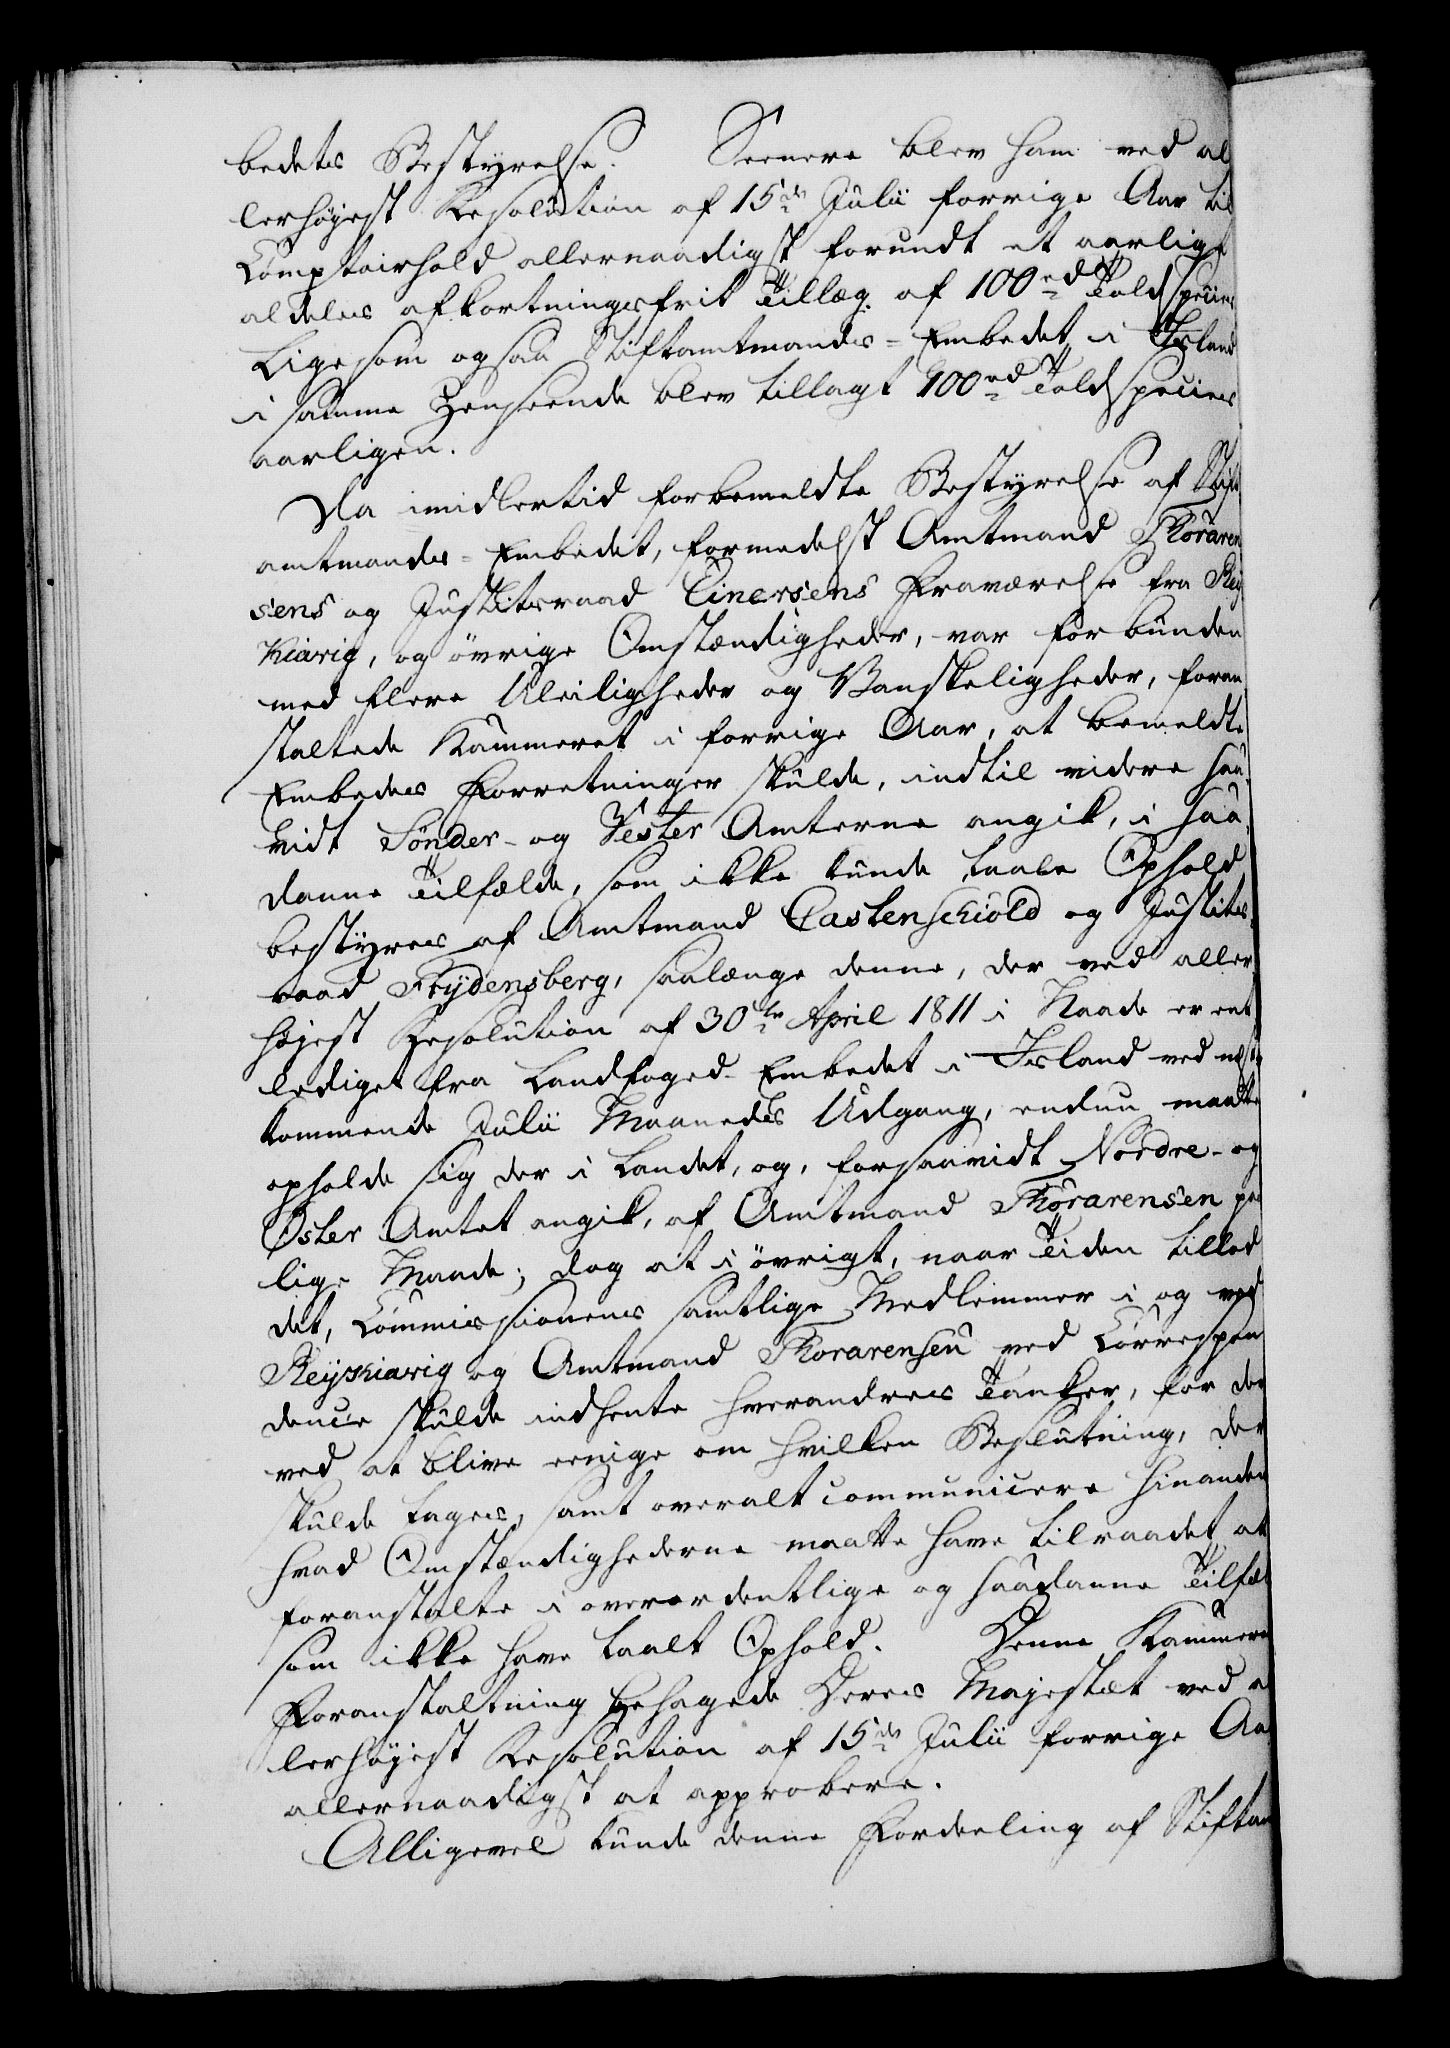 bedets Bestyrelse. Seenere blev ham ved al
lerhøyest Resolution af 15de Julii forrige Aar til
Comptoirhold allernaadigst forundt et aarligt
aldeles afkortningsfrit Tillæg af 100 rd Told species
Ligesom ogsaa Stiftamtmands-Embedet i Island
i samme Henseende blev tillagt 100 rd Told species
aarligen.
Da imidlertid forbemeldte Bestyrelse af Stift
amtmands-Embedet, formedelst Amtmand Thoraren
sens og Justitsraad Einersens Fraværelse fra Rey
kiavig, og övrige Omstændigheder, var forbunden
med flere Uleiligheder og Vanskeligheder, foran
staltede Kammeret i forrige Aar, at bemeldte
Embedes Forretninger skulde, indtil videre saa
vidt Sönder- og Vester Amterne angik, i saa
danne Tilfælde, som ikke kunde taale Ophold
bestyres af Amtmand Castenschiold og Justits
raad Frydensberg, saalænge denne, der ved aller
højest Resolution af 30te April 1811 i Naade er ent
lediget fra Landfoged-Embedet i Island ved næst
kommende Julii Maaneds Udgang, endnu maatte
opholde sig der i Landet, og, forsaavidt Nordre- og
Öster Amtet angik, af Amtmand Thorarensen paa
lige Maade; dog at i övrigt, naar Tiden tillod
det, Commissionens samtlige Medlemmer i og ved
Reykiavig og Amtmand Thorarensen ved Correspon
dence skulde indhente hverandres Tanker, for der
ved at blive eenige om hvilken Beslutning, der
skulde tages, samt overalt communicere hinanden
hvad Omstændighederne maatte have tilraadet at
foranstalte i overordentlige og saadanne Tilfæl
som ikke have taalt Ophold. Denne Kammere
Foranstaltning behagede Deres Majestæt ved a
lerhøyest Resolution af 15de Julii forrige Aa
allernaadigst at approbere.
Alligevel kunde denne Fordeeling af Stiftam